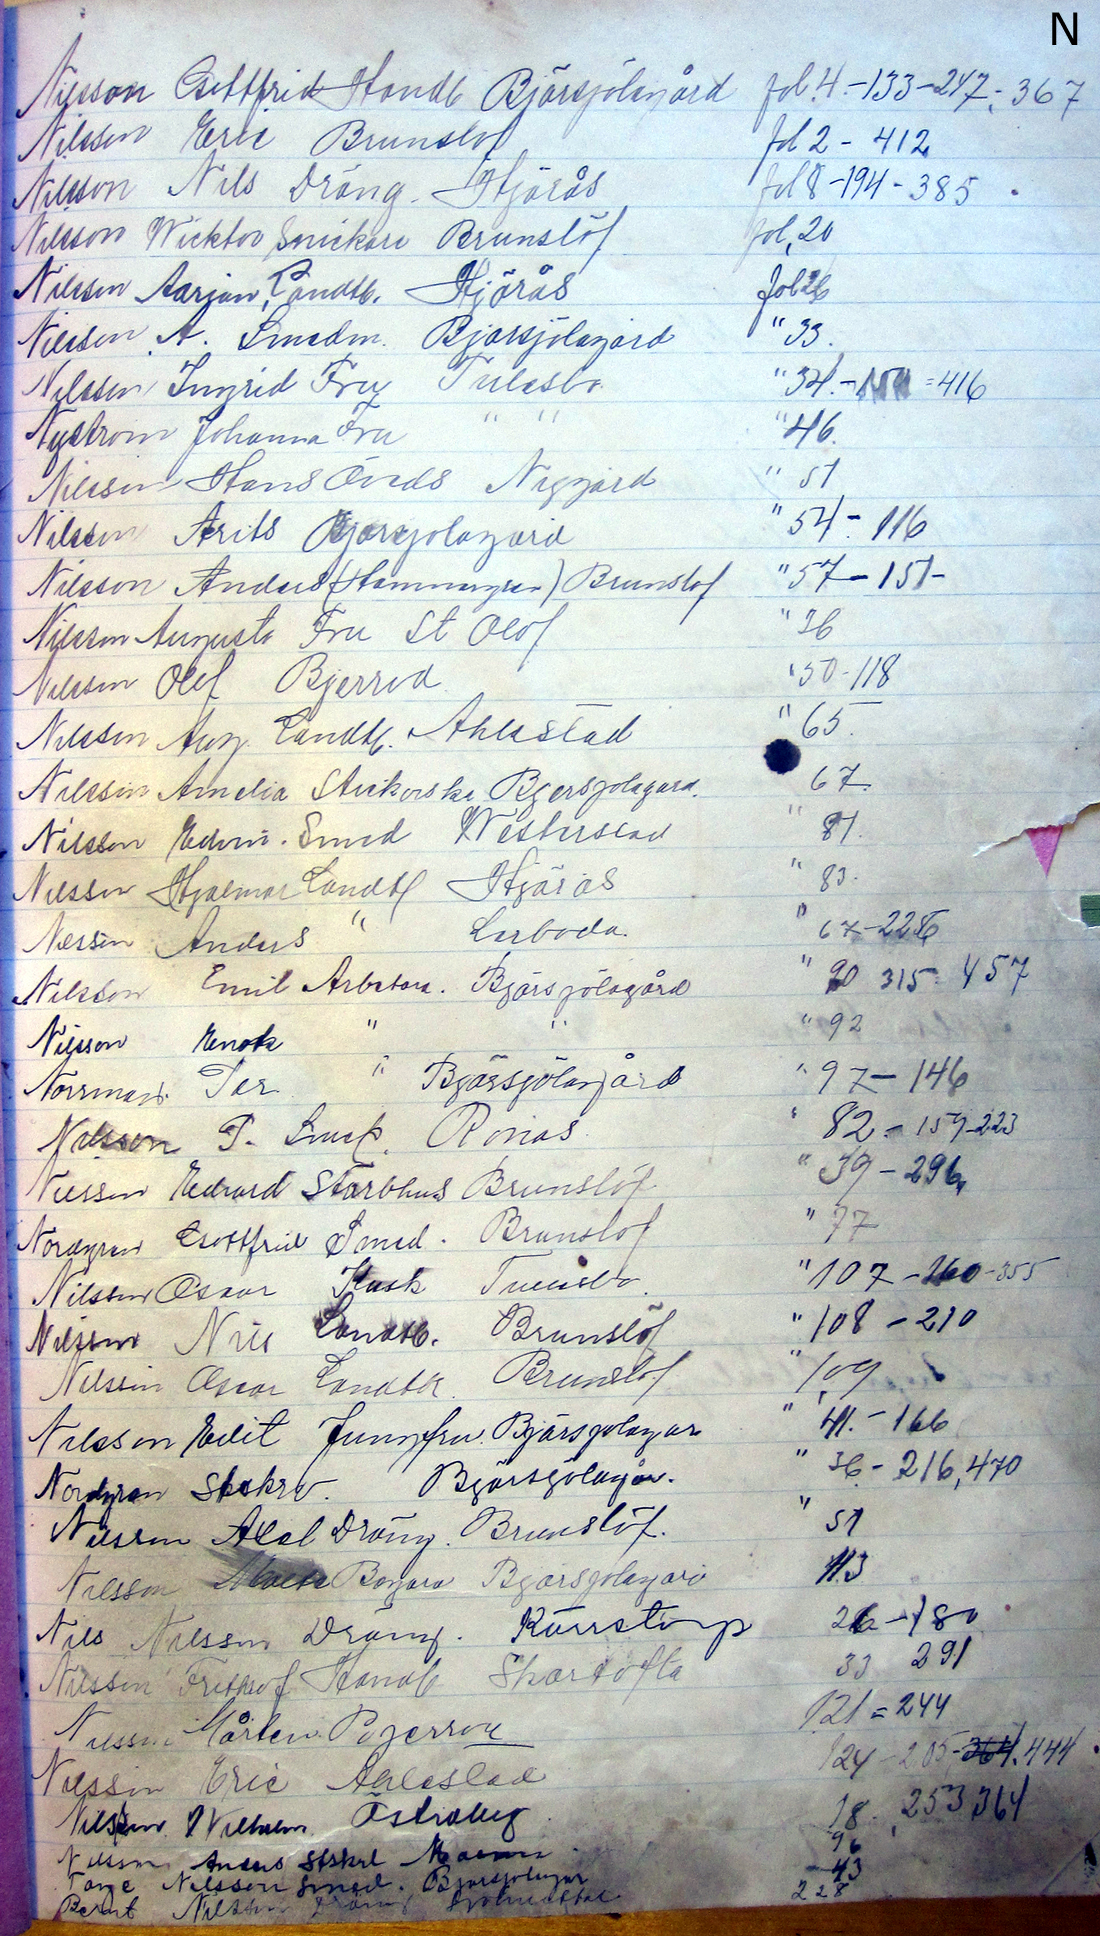 N
Nilsson Gottfrid Handl Björsjölagård fol. 4.-133-247-367
Nilsson Eric Brunslöf fol 2 - 412
Nilsson Nils Dräng. Hjärås fol 8 -194 - 385
Nilsson Wicktor Snickare Brunslöf fol. 20
Nilsson Landtb. Hjärås fol 26
Nilsson A. Smedm. Bjärsjölagård " 33.
Nilsson Ingrid Fru Tulesbo " 34. - = 416
Nyström Johanna Fru " " " 46.
Nilsson Hans Öveds Nygård " 51
Nilsson Bjärsjölagård " 54 - 116
Nilsson Anders (Hammargren) Brunslöf " 57 - 151-
Nilsson Augusta Fru St Olof " 36
Nilsson Olof Bjerröd " 50-118
Nilsson Aug. Landtb. Ahlestad " 65.
Nilsson Amelia Bjersjölagård. 67.
Nilsson Edvin. Smed Westerstad " 81.
Nilsson Hjalmar Landtb Hjärås " 83.
Nilsson Anders " Larboda. " 67-226
Nilsson Emil Arbetare. Bjärsjölagård " 90 315 457
Nilsson Enock " " " 92
Norrman. Per " Bjärsjölagård " 97 - 146
Nilsson P. Rönås " 82 - 159-223
Nilsson Edvard Starbhus Brunslöf " 39 - 296,
Nordgren Gottfrid Smed. Brunslöf " 77
Nilsson Oscar Kusk Tulesbo. " 107 - 260 -355
Nilsson Nils Landtb. Brunslöf " 108 - 210
Nilsson Oscar Landtbr. Brunslöf " 109
Nilsson Edit Jungfru. Bjärsjölagår " 41. - 166
Nordgren Bjärsjölagår. " 36 - 216,470
Nilsson Axel Dräng. Brunslöf. " 51
Nilsson Bagare Bjärsjölagård 113
Nils Nilsson Dräng. Karrstorp 26 - 180
Nilsson Frithiof Handl Skartofta 33 291
Nilsson Mårten Bjerröd 121 = 244
Nilsson Eric Ahlestad 124 - 205-364. 444
Nilsson Wilhelm 18. 253 364
Nilsson Anders 96
Tage Nilsson Smed. Bjärsjölagår 43
Bernt Nilsson Dräng 228